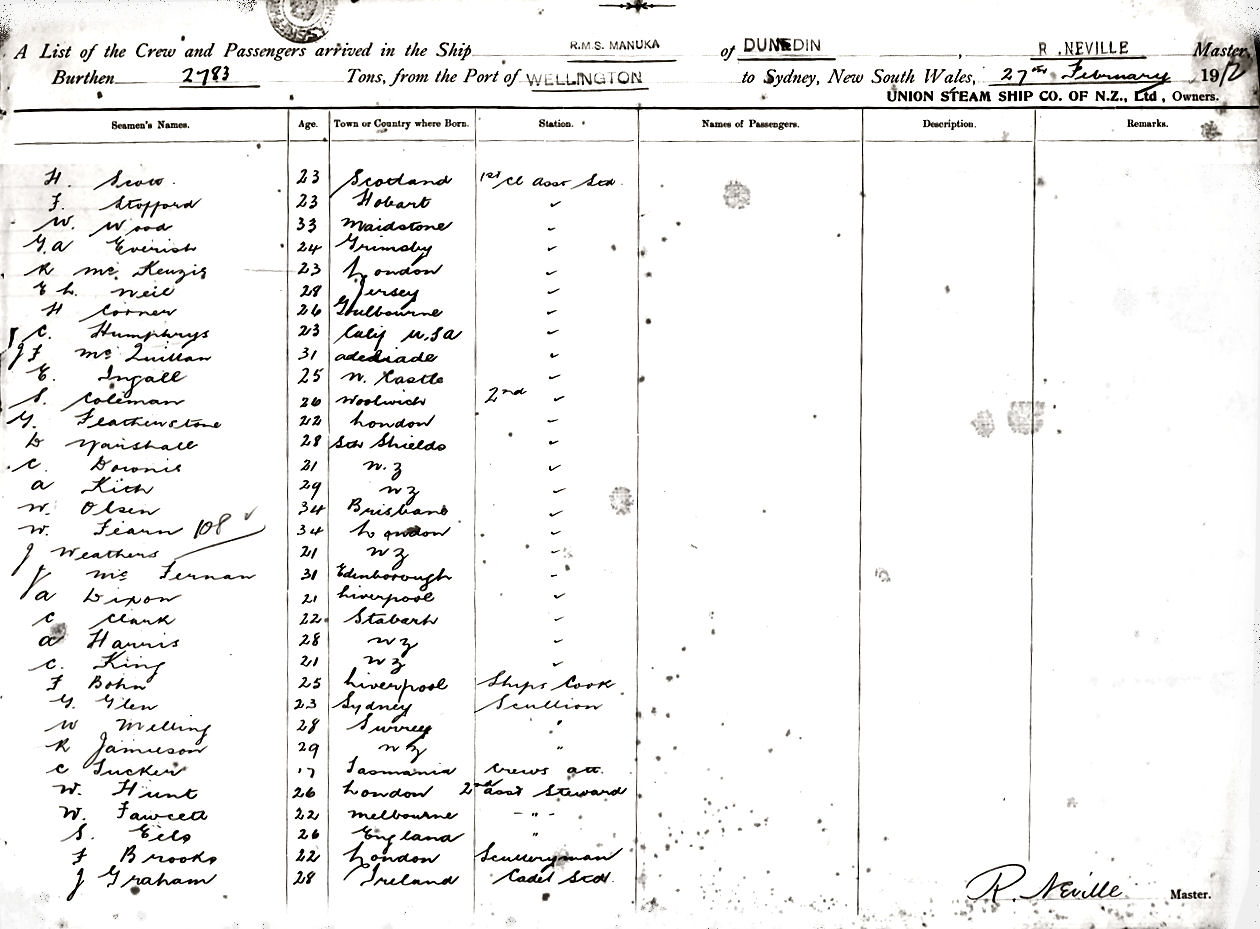 A List of the Crew and Passengers arrived in the Ship R.M.S. MANUKA of DUNEDIN, R. NEVILLE Master,
Burthen 2783 Tons, from the Port of WELLINGTON to Sydney, New South Wales, 27th February 1912
UNION STEAM SHIP CO. OF N.Z., Ltd, Owners.
Seamen's Names. Age. Town or Country where Born. Station. Names of Passengers. Description. Remarks.
H. 23 Scotland 1st Cl Asst Std.
F. Stofford 23 Hobart ✓
W. Wood 33 Maidstone ✓
G. A Everish 24 Grimsby ✓
R Mc Kenzie 23 London ✓
E L. Neil 28 Jersey ✓
H Corner 26 Goulbourne ✓
C. Humphrys 23 Calif U.S.A ✓
J F Mc Quillan 31 adediade ✓
E. Ingall 25 N. Castle ✓
S. Coleman 26 Woolwich 2nd ✓
G. Featherstone 22 London ✓
D Marshall 28 Sth Shields ✓
C. Downie 21 N.Z ✓
A 29 NZ ✓
W. Olsen 34 Brisbane ✓
W. Fearn 108 ✓ 34 London ✓
J Weathers 21 NZ ✓
J Mc Fernan 31 Edinborough ✓
A Dixon 21 Liverpool ✓
C Clark 22 ✓
A Harris 28 NZ ✓
C. King 21 NZ ✓
F Bohn 25 Liverpool Ships Cook
G. Glen 23 Sydney Scullion
W Melling 28 Surrey "
R Jamieson 29 NZ "
C Tucker 17 Tasmania Crews att.
W. Hunt 26 London 2nd asst Steward
W. Fawcett 22 Melbourne - " -
S. Eels 26 England "
F Brooks 22 London Sculleryman
J Graham 28 Ireland Cadet Std.
R. Neville Master.